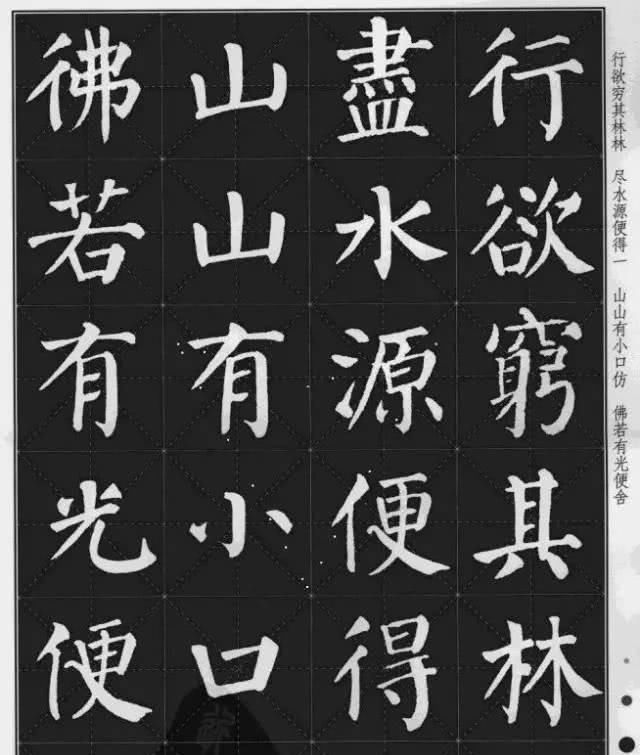 行欲窮其林
盡水源便得
山山有小口
彿若有光便
行欲穷其林林 尽水源便得一 山山有小口仿 佛若有光便舍